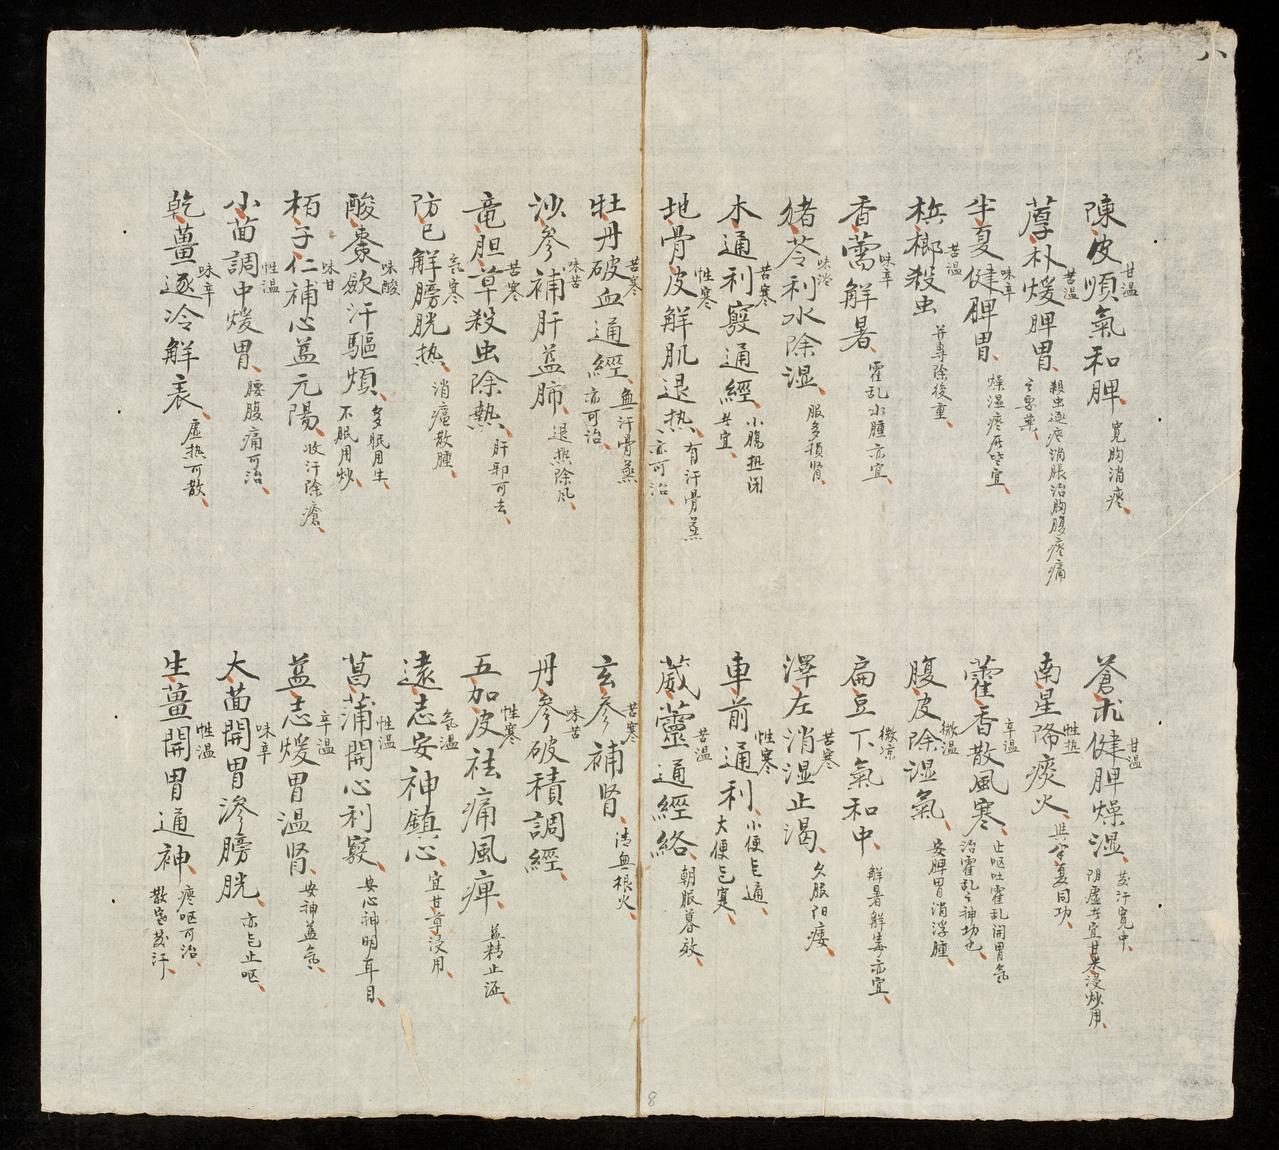 八
陳皮順氣和脾 甘温 寛胸消痰
蒼朮健脾燥湿 甘温 發汗寛中 阴虚者宜甘米浸炒用
蕈朴煖脾胃 苦温 殺虫逐疼消脹治胸腹疼痛之要薬
南星降痰火 性热 与半夏同功
半夏健脾胃 味辛 燥湿痰厥皆宜
藿香散風寒 辛温 止呕吐霍乱開胃氣 治霍乱之神功也
梹榔殺虫 苦温 并專除後重
腹皮除湿氣 微温 安脾胃消浮腫
香薷解暑 味辛 霍乱水腫亦宜
扁豆下氣和中 微凉 解暑解毒亦宜
猪苓利水除湿 味淡 服多損肾
澤左消湿止渴 苦寒 久服阳痿
木通利竅通經 苦寒 小膓热闭者宜
車前通利 性寒 小便乞通 大便乞寔
地骨皮解肌退热 性寒 有汗骨蒸亦可治
葳蕤通經絡 苦温 朝服暮效
牡丹破血通經 苦寒 無汗骨蒸亦可治
玄參補肾 苦寒 清無根火
沙參補肝益肺 味苦 退热除風
丹參破積調經 味苦
竜胆草殺虫除熱 苦寒 肝邪可去
五加皮祛痛風痺 性寒 益精止涩
防已解膀胱热 氣寒 消癰散腫
遠志安神鎮心 氣温 宜甘草浸用
酸棗歛汗驅煩 味酸 多眠用生 不眠用炒
菖蒲開心利竅 性温 安心神明耳目
栢子仁補心益元陽 味甘 收汗除瘡
益志煖胃温肾 辛温 安神益氣
小茴調中煖胃 性温 腰腹痛可治
大茴開胃滲膀胱 味辛 亦乞止呕
乾薑逐冷解表 味辛 虚热可散
生薑開胃通神 性温 痰呕可治 散寒發汗
8